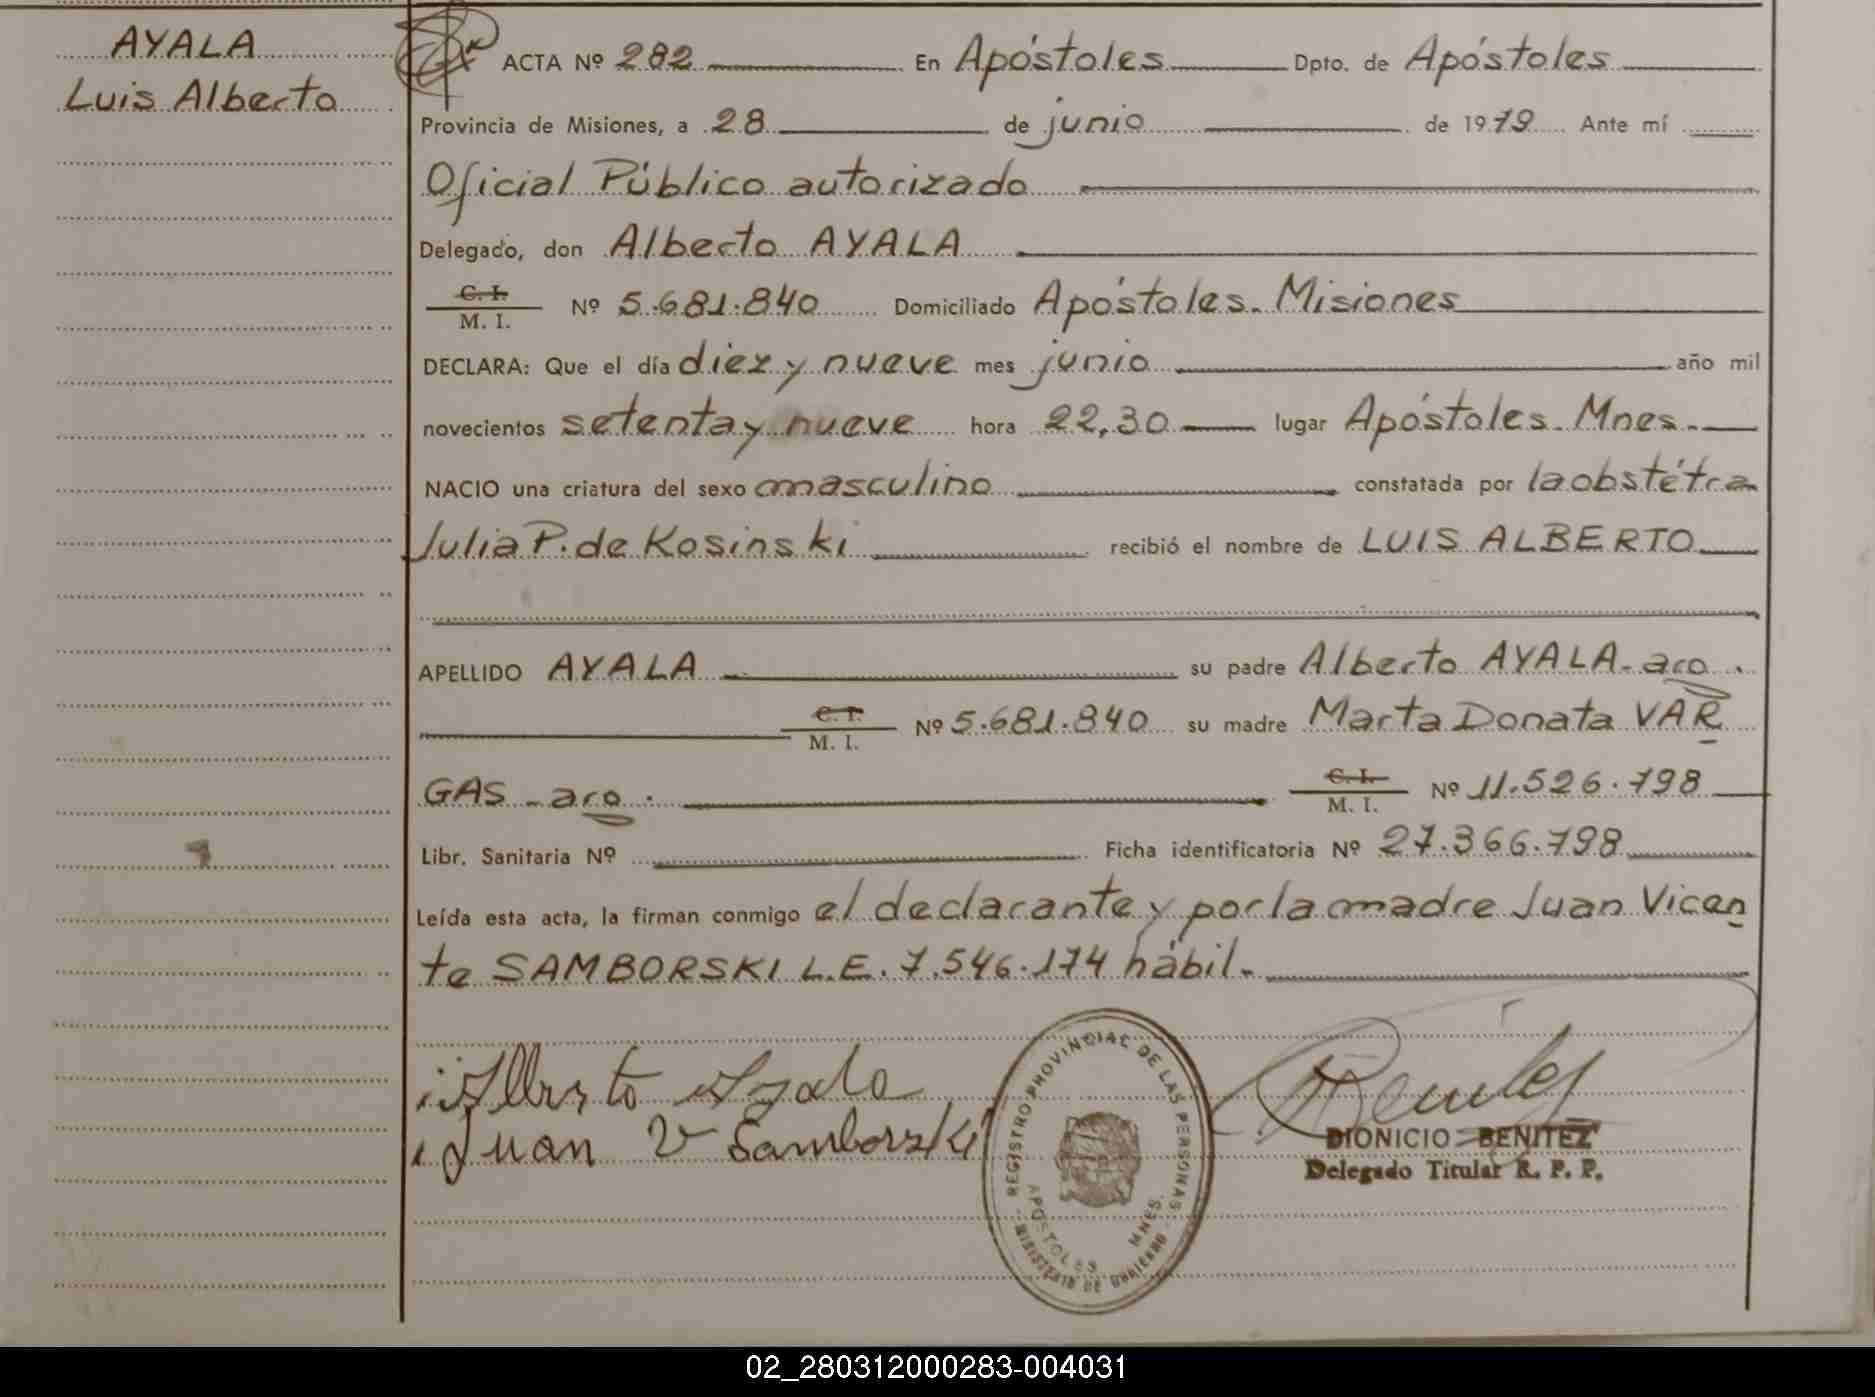 AYALA
Luis Alberto
ACTA Nº 282 En Apóstoles Dpto. de Apóstoles
Provincia de Misiones, a 28 de junio de 1979 Ante mí
Oficial Público autorizado
Delegado, don Alberto AYALA
C. I.
M. I. Nº 5.681.840 Domiciliado Apóstoles. Misiones
DECLARA: Que el día diez y nueve mes junio año mil
novecientos setenta y nueve hora 22,30 lugar Apóstoles. Mnes.
NACIO una criatura del sexo masculino constatada por la obstétra
Julia P. de Kosinski recibió el nombre de LUIS ALBERTO
APELLIDO AYALA su padre Alberto AYALA - aro.
C. I.
M. I. Nº 5.681.840 su madre Marta Donata VAR
GAS - aro. C. I.
M. I. Nº 11.526.798
Libr. Sanitaria Nº Ficha identificatoria Nº 27.366.798
Leída esta acta, la firman conmigo el declarante y por la madre Juan Vicen
te SAMBORSKI L.E. 7.546.174 hábil.
Alberto Ayala
Juan V Samborski
REGISTRO PROVINCIAL DE LAS PERSONAS
APOSTOLES MNES.
MINISTERIO DE GOBIERNO
DIONICIO BENITEZ
Delegado Titular R. P. P.
02_280312000283-004031